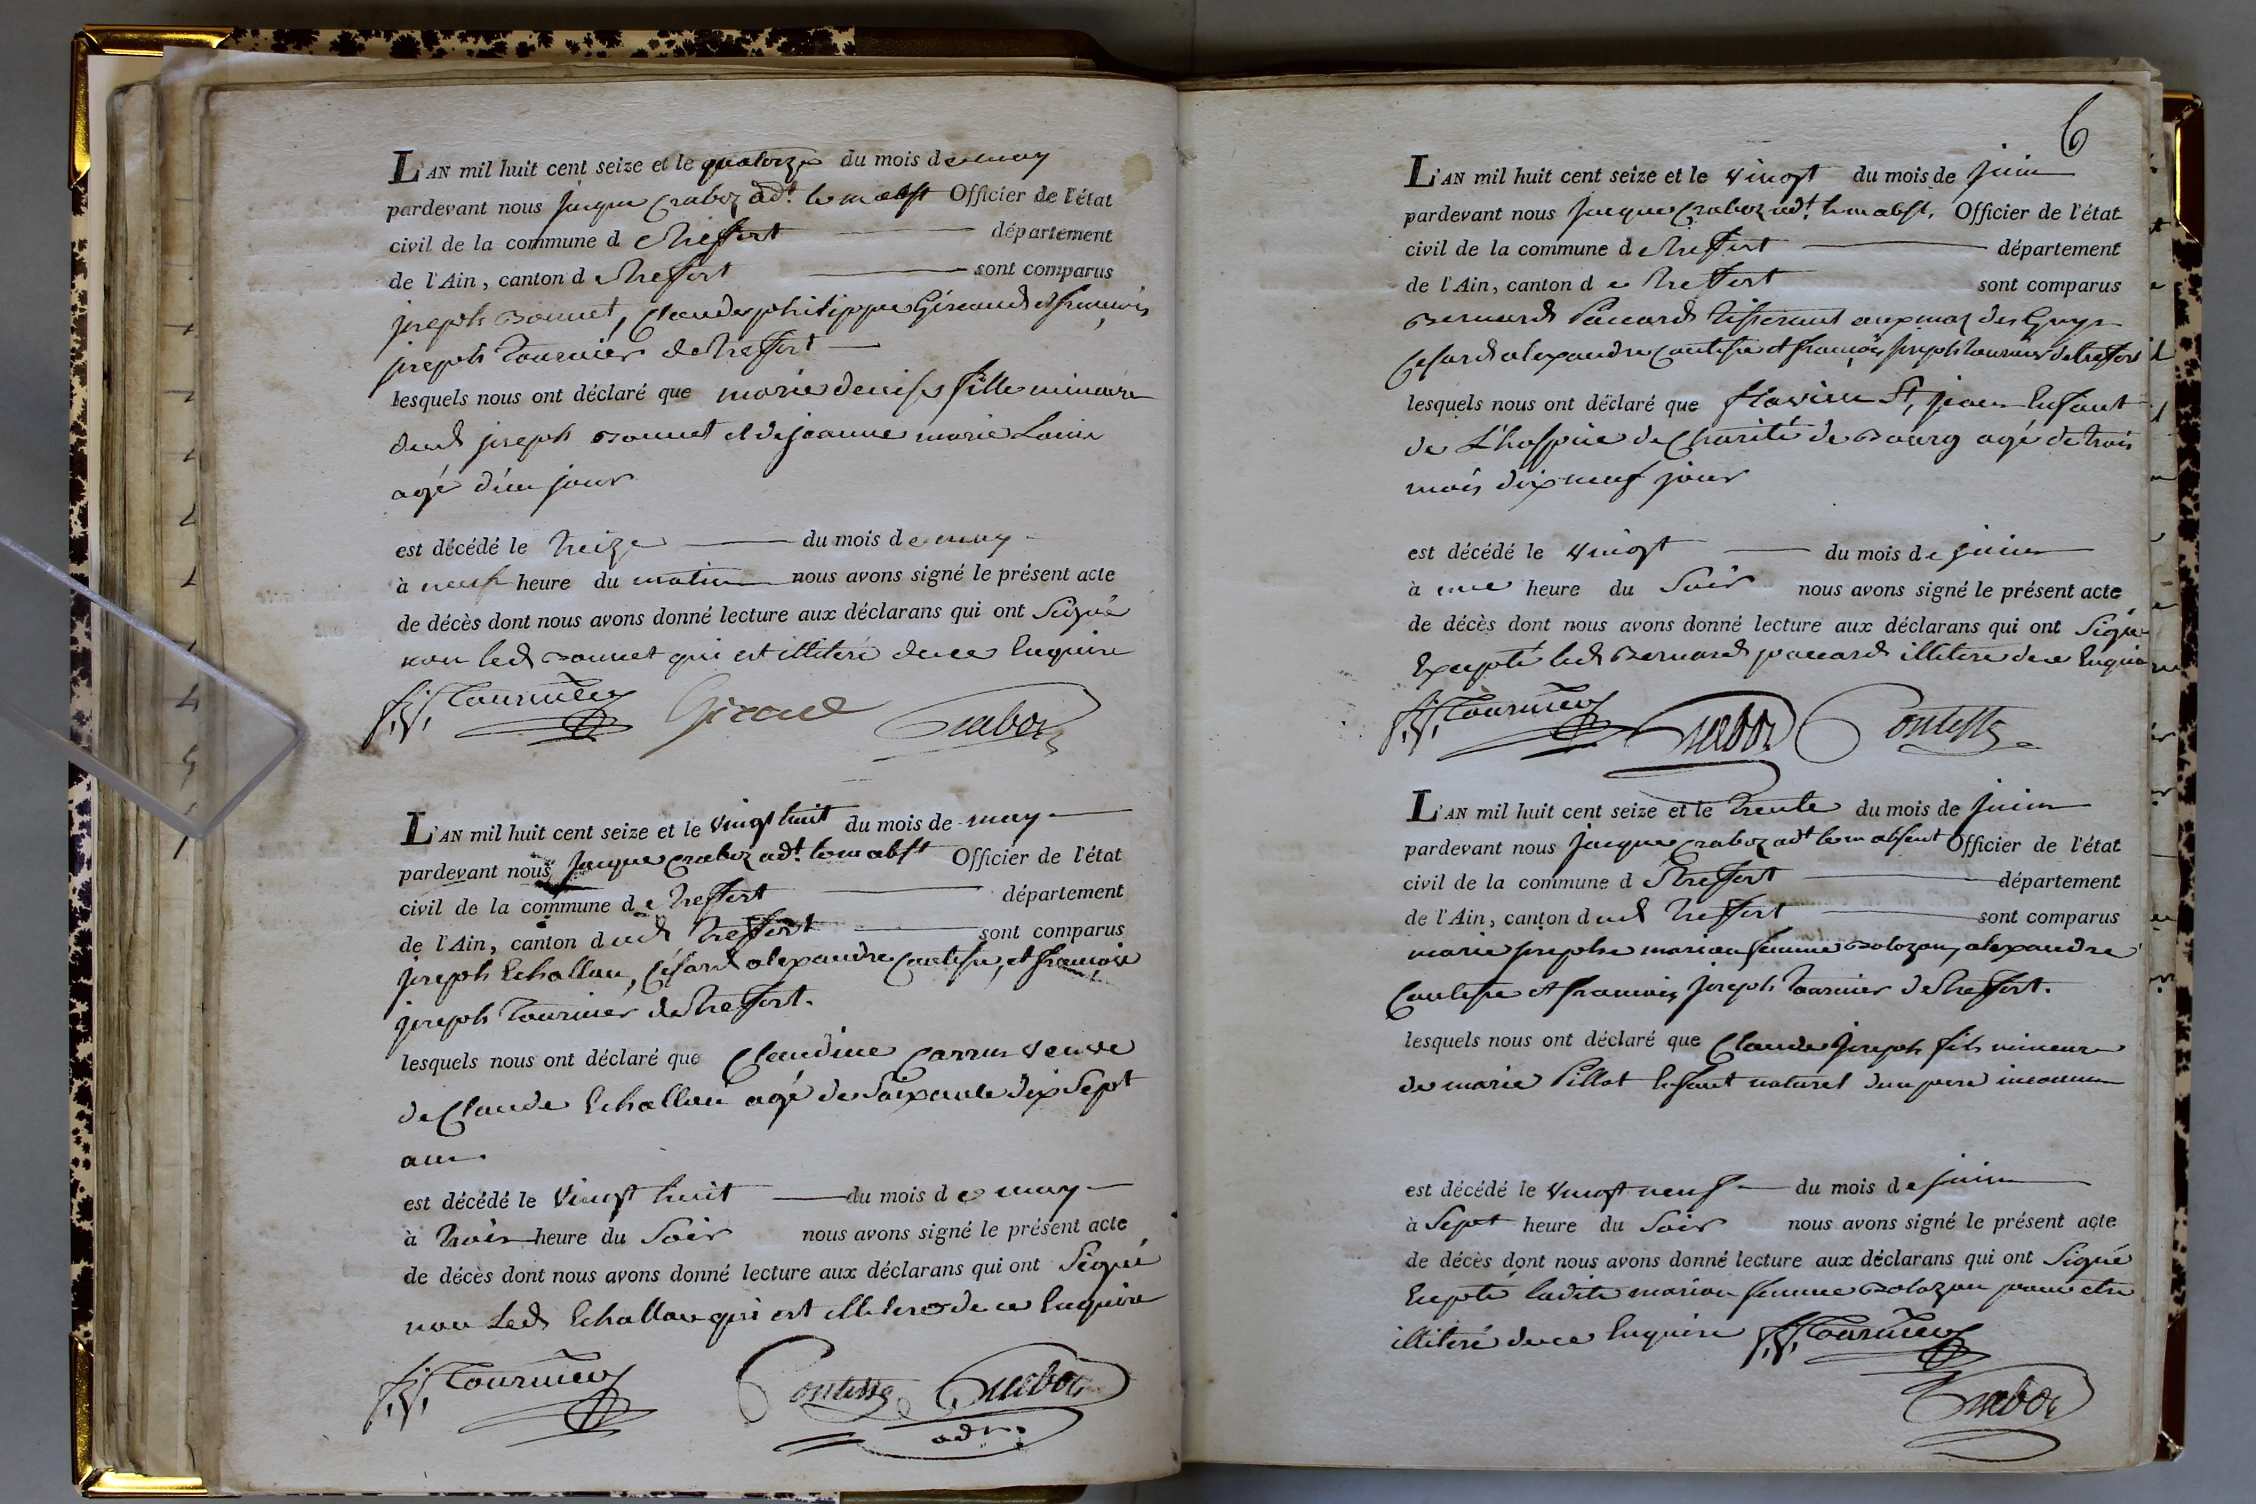 L'AN mil huit cent seize et le quatorze du mois de may
pardevant nous jacque Craboz adt. le m abst Officier de l'état
civil de la commune de treffort département
de l'Ain, canton de treffort sont comparus
joseph Bonnet, Claude philippe Giraud et françois
joseph tournier de treffort
lesquels nous ont déclaré que marie denise fille mineure
dud joseph Bonnet et de jeanne marie
agé d'un jour
est décédé le treize du mois de may
à neuf heure du matin nous avons signé le présent acte
de décès dont nous avons donné lecture aux déclarans qui ont Signé
non led Bonnet qui est illiteré de ce Enquire
f. j. Tournier Giraud Craboz
L'AN mil huit cent seize et le vingt huit du mois de may
pardevant nous jacque Craboz adt. le m abst Officier de l'état
civil de la commune de treffort département
de l'Ain, canton dud treffort sont comparus
joseph Echallon, Césard alexandre Contesse, et françois
joseph tournier de treffort.
lesquels nous ont déclaré que Claudine veuve
de Claude Echallon agé de Soixante dix Sept
ans.
est décédé le vingt huit du mois de may
à trois heure du Soir nous avons signé le présent acte
de décès dont nous avons donné lecture aux déclarans qui ont Signé
non Led Echallon qui est illiteré de ce Enquire
f. j. Tournier Contesse Craboz
adt.
6
L'AN mil huit cent seize et le vingt du mois de juin
pardevant nous jacque Craboz adt. le m abst. Officier de l'état
civil de la commune de treffort département
de l'Ain, canton de treffort sont comparus
Bernard Paccard tisserant aux maz des Guys
Césard alexandre Contesse et françois joseph tournier de treffort
lesquels nous ont déclaré que St, jean Enfant
de L'hospice de Charité de Bourg agé de trois
mois dix neuf jour
est décédé le vingt du mois de juin
à une heure du Soir nous avons signé le présent acte
de décès dont nous avons donné lecture aux déclarans qui ont Signé
Excepté led Bernard paccard illiteré de ce Enquire
f. j. Tournier Craboz Contesse
L'AN mil huit cent seize et le trente du mois de juin
pardevant nous jacque Craboz adt le m absent Officier de l'état
civil de la commune de treffort département
de l'Ain, canton dud treffort sont comparus
marie josephe marion femme Bolozon, alexandre
Contesse et françois joseph tournier de treffort.
lesquels nous ont déclaré que Claude joseph fils mineure
de marie Pillot Enfant naturel d'un pere inconnu
est décédé le vingt neuf du mois de juin
à Sept heure du Soir nous avons signé le présent acte
de décès dont nous avons donné lecture aux déclarans qui ont Signé
Excepté ladite marion femme Bolozon pour etre
illiteré de ce Enquire f. j. Tournier
Craboz